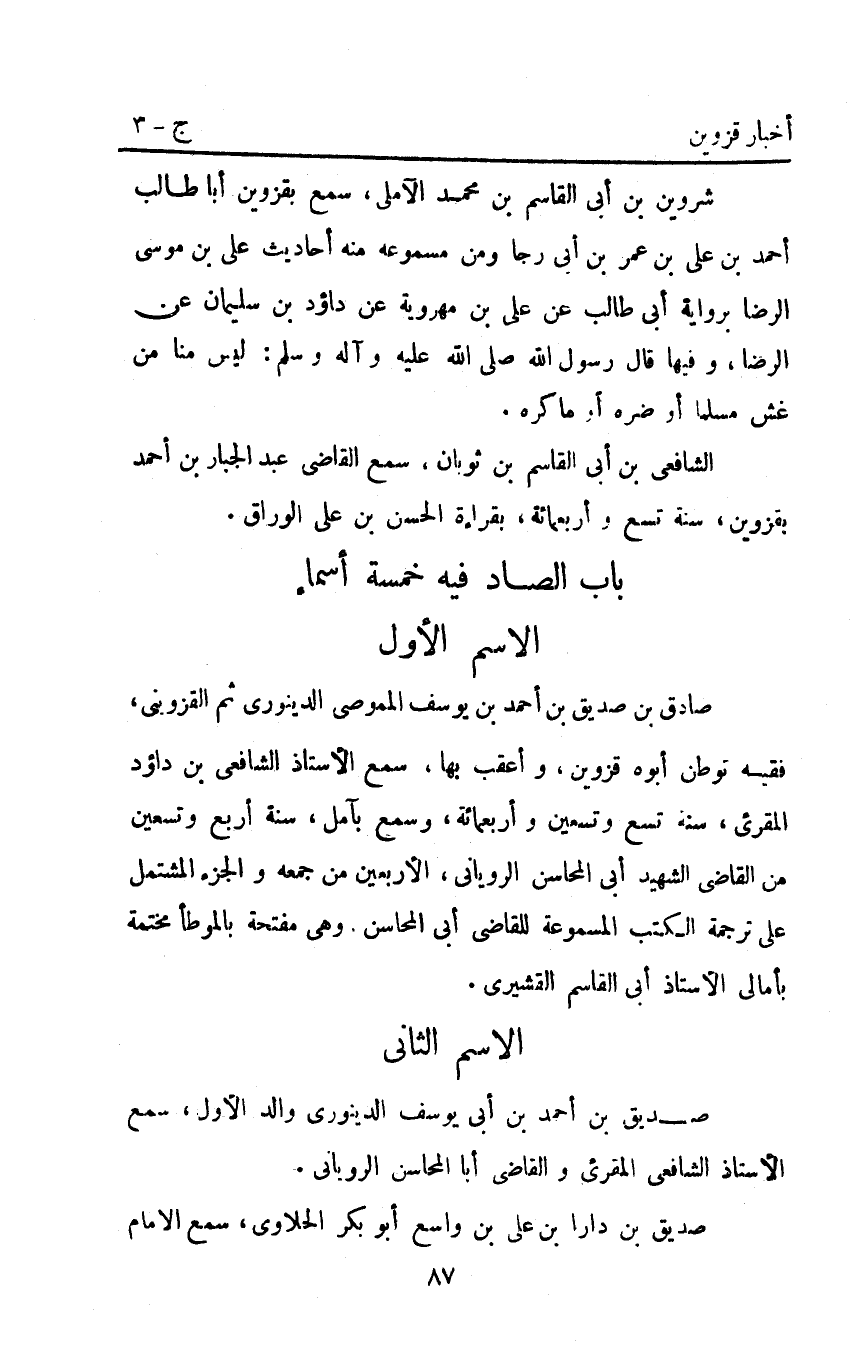 أخبار قزوين ج - ٣
شروين بن أبى القاسم بن محمد الآملى، سمع بقزوين أبا طالب
أحمد بن على بن عمر بن أبى رجا ومن مسموعه منه أحاديث على بن موسى
الرضا برواية أبى طالب عن على بن مهروية عن داؤد بن سليمان عن
الرضا، و فيها قال رسول الله صلى الله عليه و آله و سلم: ليس منا من
غش مسلما أو ضره أو ماكره .
الشافعى بن أبى القاسم بن ثوبان، سمع القاضى عبد الجبار بن أحمد
بقزوين، سنة تسع و أربعمائة، بقراءة الحسن بن على الوراق .
باب الصاد فيه خمسة أسماء
الاسم الأول
صادق بن صديق بن أحمد بن يوسف الموصى الدينورى ثم القزوينى،
فقيه توطن أبوه قزوين، و أعقب بها، سمع الأستاذ الشافعى بن داؤد
المقرئ، سنة تسع وتسعين و أربعمائة، وسمع بآمل، سنة أربع وتسعين
من القاضى الشهيد أبى المحاسن الرويانى، الأربعين من جمعه و الجزء المشتمل
على ترجمة الكتب المسموعة للقاضى أبى المحاسن. وهى مفتحة بالموطأ مختمة
بأمالى الأستاذ أبى القاسم القشيرى .
الاسم الثانى
صديق بن أحمد بن أبى يوسف الدينورى والد الأول، سمع
الأستاذ الشافعى المقرئ و القاضى أبا المحاسن الرويانى .
صديق بن دارا بن على بن واسع أبو بكر الحلاوى، سمع الامام
٨٧